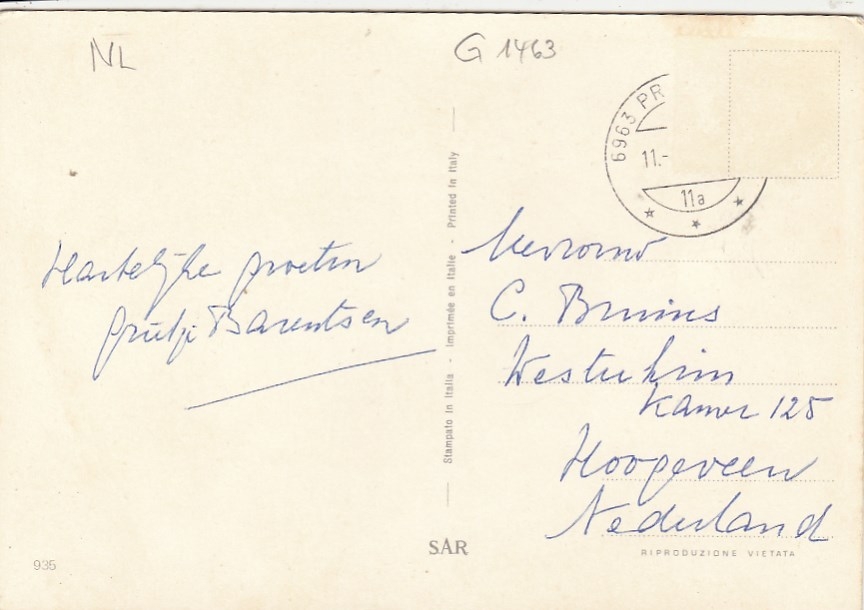 NL
G 1463
6963 PR
11.-
11a
Hartelijke groeten
Barentsen
Mevrouw
C. Bruins
Westerkim
Kamer 125
Hoogeveen
Nederland
Stampato in Italia - Imprimée en Italie - Printed in Italy
935
SAR
RIPRODUZIONE VIETATA